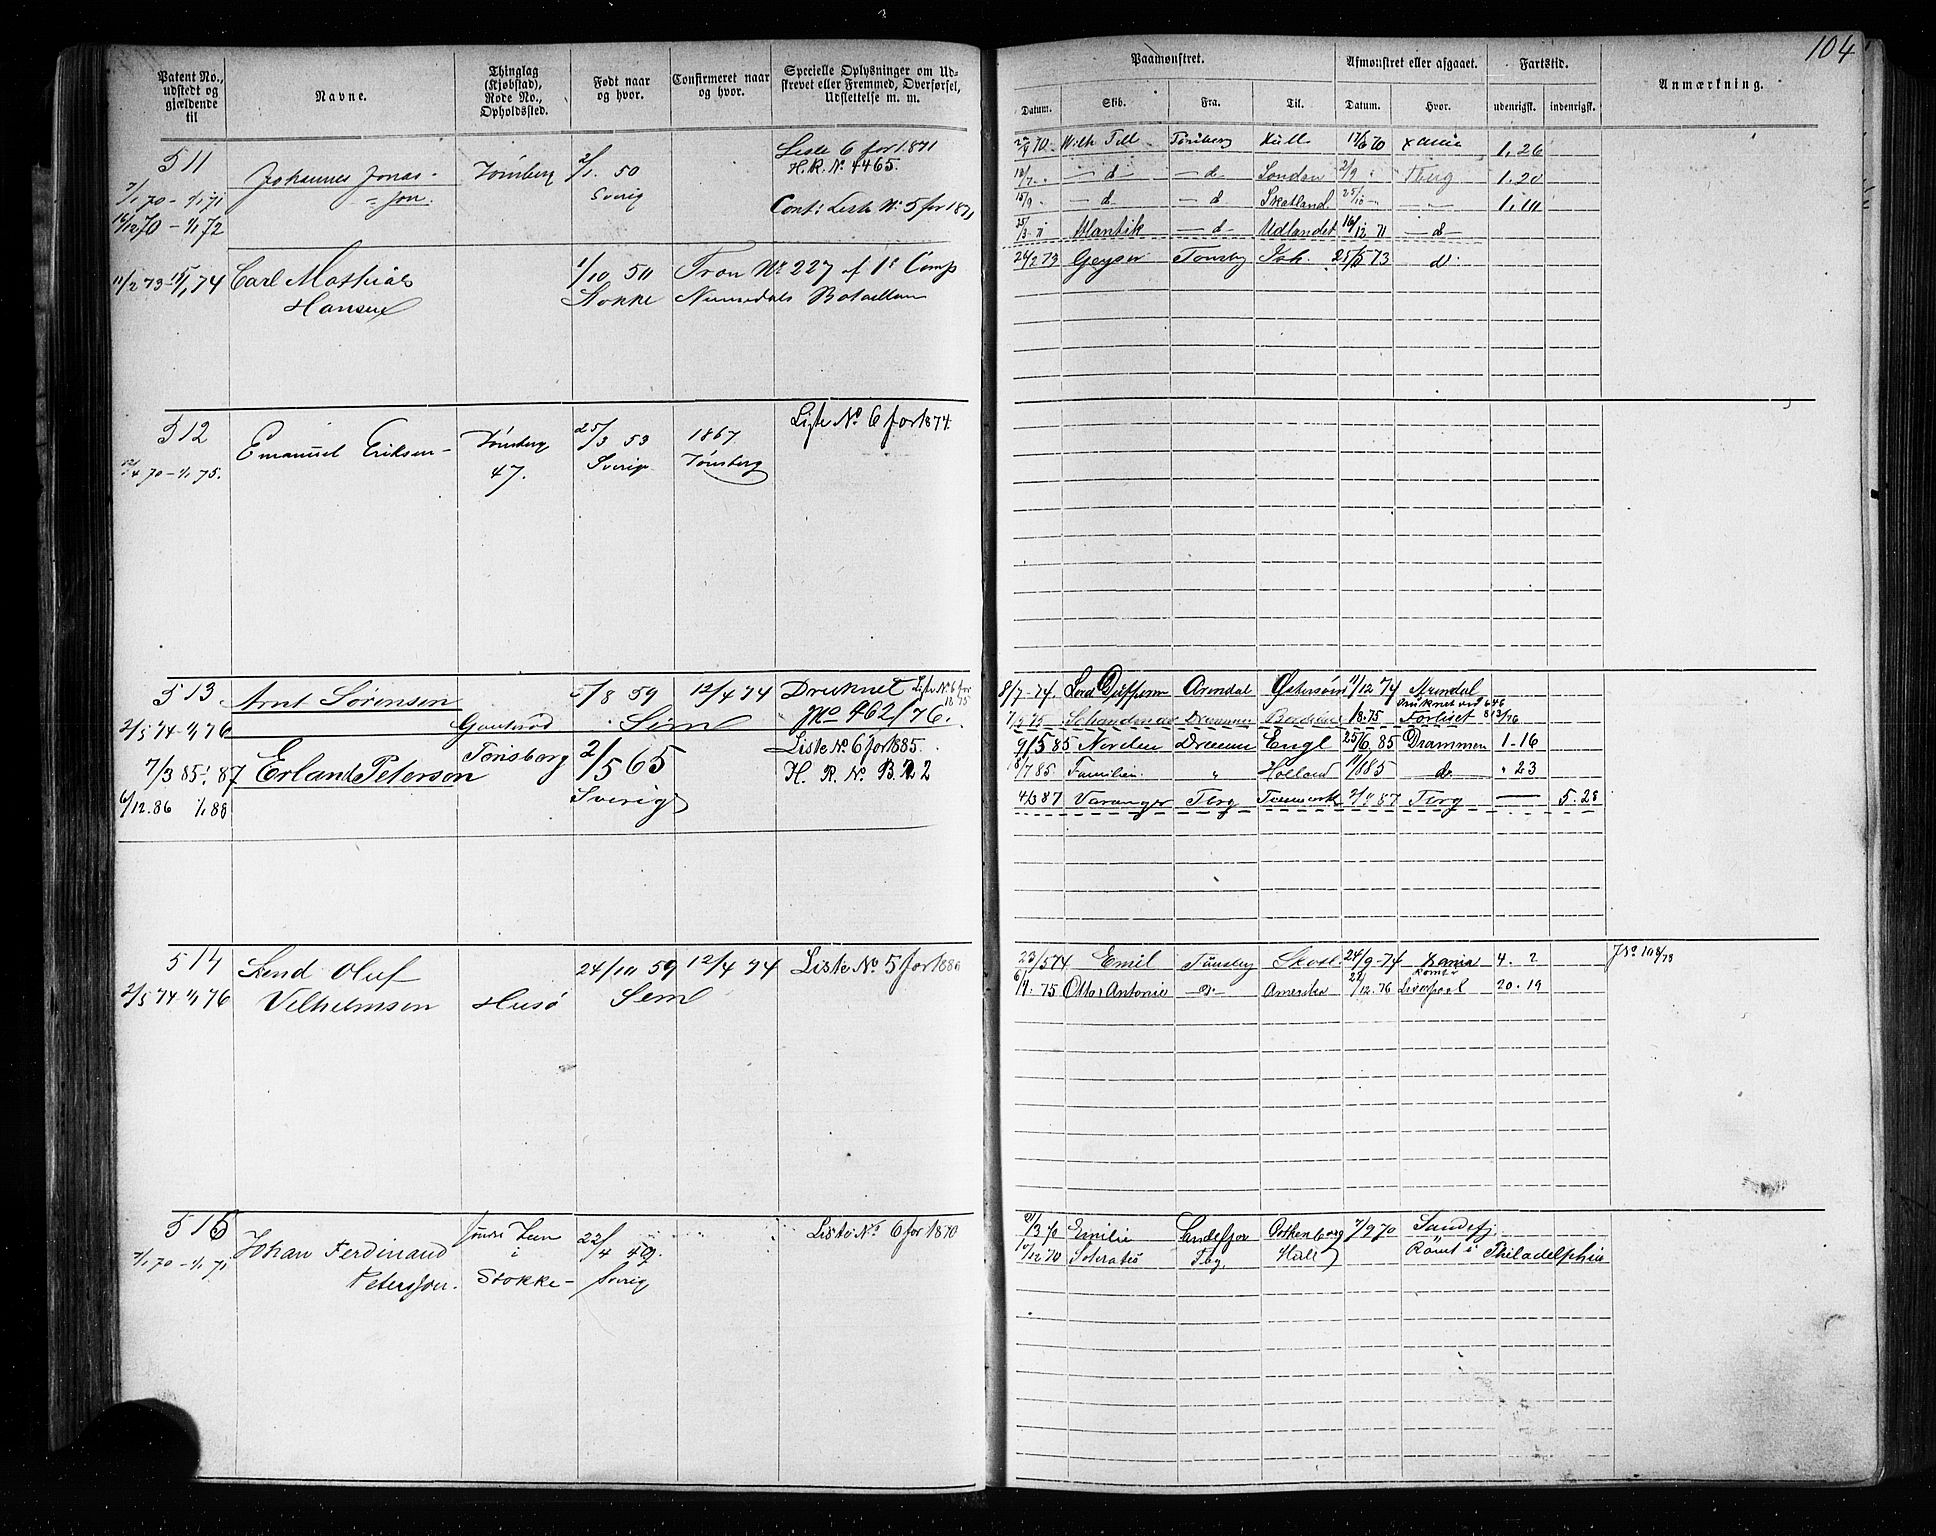 104
Patent No., udstedt og gjældende til
Navne.
Thinglag (Kjøbstad), Rode No., Opholdssted.
Født naar og hvor.
Confirmeret naar og hvor.
Specielle Oplysninger om Udskrevet eller Fremmed, Overførsel, Udslettelse m. m.
Paamønstret.
Afmønstret eller afgaaet.
Fartstid.
Anmærkning.
Datum. Skib. Fra. Til. Datum. Hvor. udenrigsk. indenrigsk.
511 Johannes Jonasson. Tönsberg 2/1 50 Sverig
7/1 70 - 1/1 71
16/12 70 - 1/1 72
Liste 6 for 1871
H.R. No. 4465.
Cont: Liste No 5 for 1871
Wilh Tell Tönsberg Hull 17/6 70 1.26
12/7 " — d — — d London 2/9 " Tberg 1.20
15/9 " — d — — d Skotland 25/10 — " 1.
— d — Udlandet 16/12 71 — d —
26/2 73 Geyser Tonsbg 25/5 73 d.
11/2 73 - 1/1 74 Carl Mathias Hansen 1/10 50 Stokke
Tron No 227 af 1e Comp Numedals Bataillon
512 Emanuel Eriksen - Tönsberg 47. 25/3 53 Sverig 1867 Tönsberg
Liste No 6 for 1874.
/4 70 - 1/1 75.
513 Arnt Sörensen /8 59 Sem 12/4 74 Druknet Liste No 6 for 1875
2/5 74 - 1/1 76 No 462/76.
8/7 - 74. Lord Arendal Østersöen 11/12 74 Arendal
Drammen 75 Forliset
7/3 85 - 87 Erland Peterson Tönsberg 2/5 65 Sverig
6/12.86 1/1 88
Liste No 6 for 1885.
H. R. No B. 22
9/5 85 Norden Drammen Engl 25/6 85 Drammen 1.16
/7 85 Familien. " Holland 11/8 85 d " 23
4/3 87 Varanger Tbrg 87 Tbrg — 5.28
514 Svend Oluf Vilhelmsen Husö 24/10 59 Sem 12/4 74 Liste No 5 for 1880
2/5 74 - 1/1 76
23/5 74 Emil Tönsberg Skotl. 24/9 - 74 4. 2 JNo 108/78
6/4. 75 Otto & Antonie — d — Amerika 22/12. 76 Römt Liverpool 20. 19
515 Johan Ferdinand Petersson. i Stokke - 22/4 49. Sverig Liste No 6 for 1870
7/1 70 - 1/1 71
/3 70 Emilie Sandefjor Gothenborg 7/9 70 Sandefj
/12 70 Sokrates Tbg Römt i Philadelphia